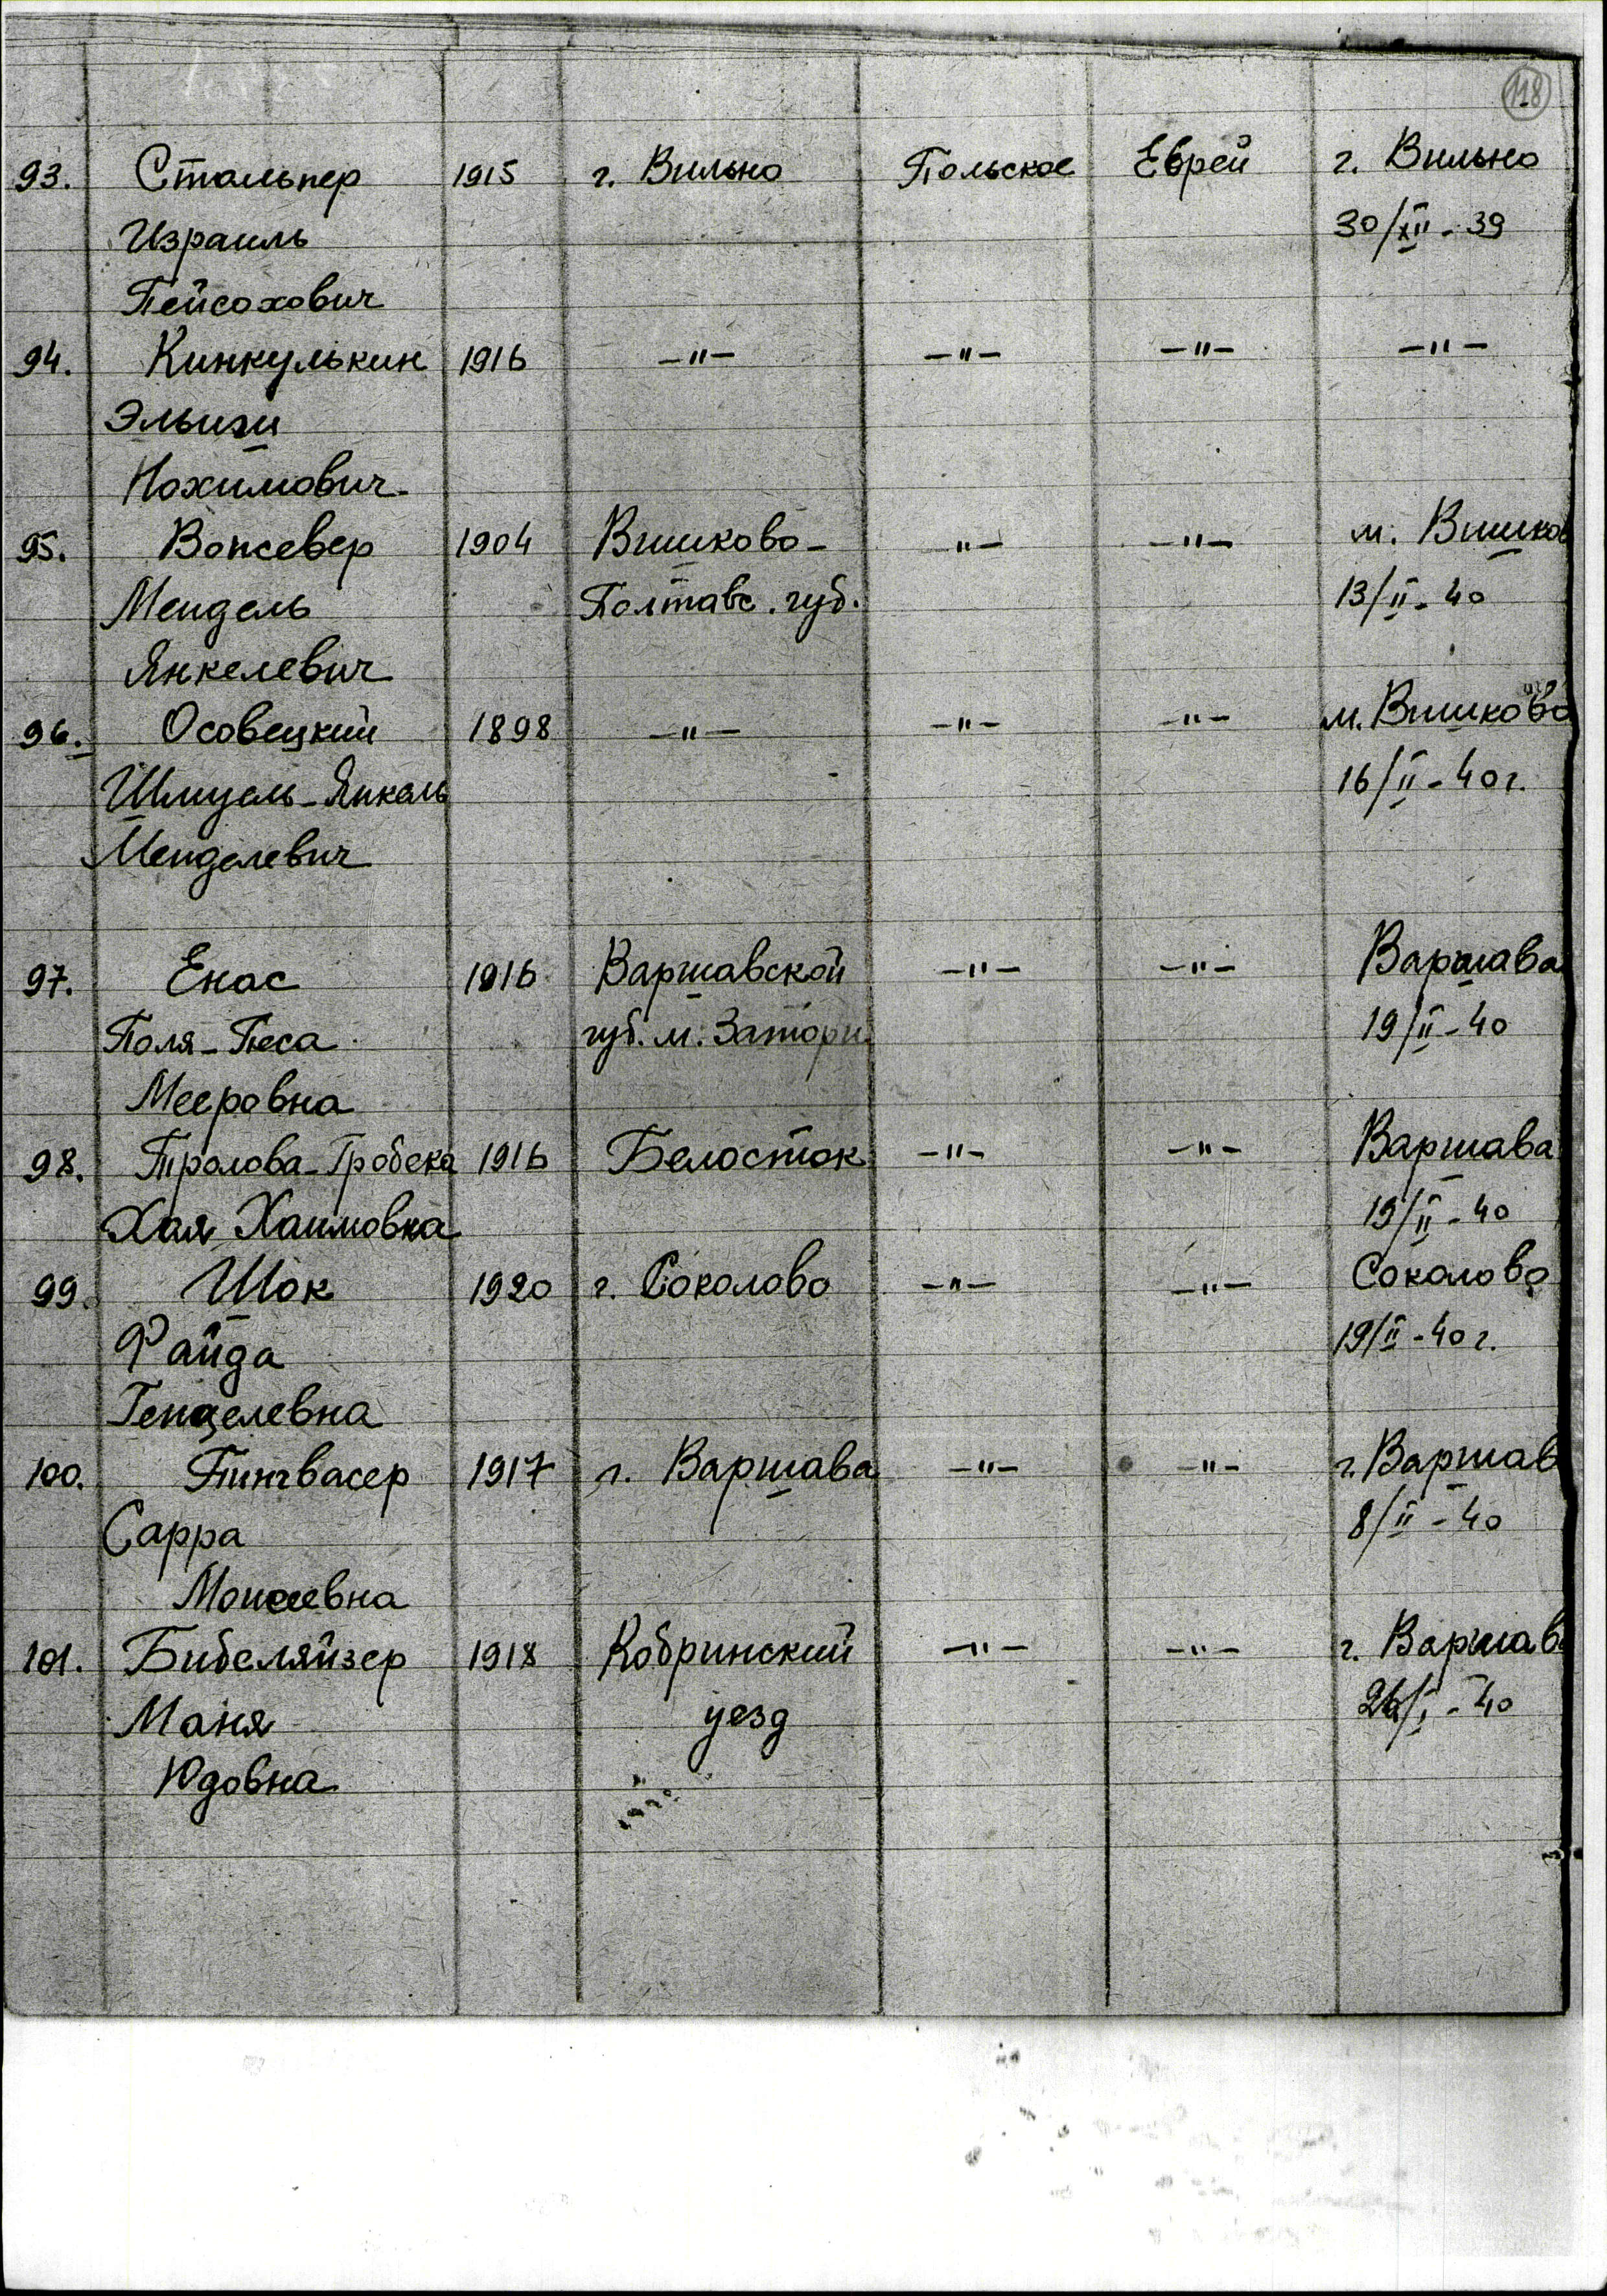 118
93. Стольпер 1915 г. Вильно Польское Еврей г. Вильно
Израиль 30/XII - 39
Пейсохович
94. Кинкулькин 1916 —"— —"— —"— —"—
Эльиги
Нохимович
95. Вопсевер 1904 Вишково- —"— —"— м. Вишков
Мендель Полтавс. губ. 13/II - 40
Янкелевич
96. Осовецкий 1898 —"— —"— —"— м. Вишково
Шмуель-Янкель 16/II - 40 г.
Менделевич
97. Енас 1916 Варшавской —"— —"— Варшава
Поля-Песа губ. м. Затори 19/II - 40
Мееровна
98. Тролова-Гробска 1916 Белосток —"— —"— Варшава
Хая Хаимовна 19/II - 40
99. Шок 1920 г. Соколово —"— —"— Соколово
Файда 19/II - 40 г.
Генделевна
100. Пингвасер 1917 г. Варшава —"— —"— г. Варшав
Сарра 8/II - 40
Моисеевна
101. Бибеляйзер 1918 Кобринский —"— —"— г. Варшав
Маня уезд 26/I - 40
Юдовна